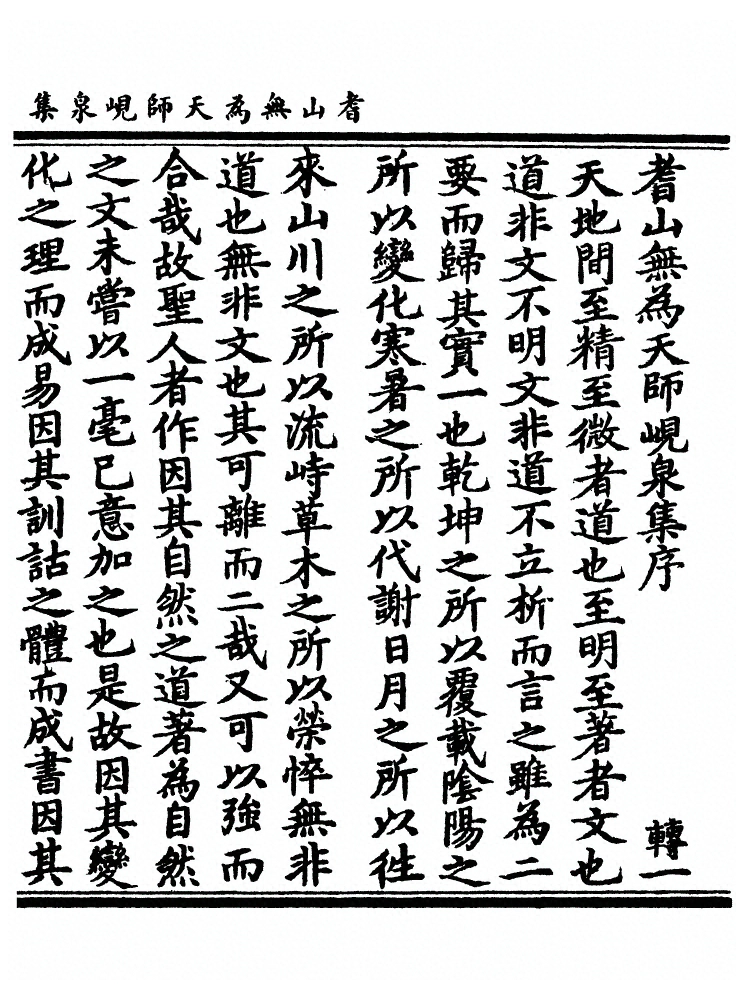 耆山無為天師峴泉集
耆山無為天師峴泉集序
轉一
天地間至精至微者道也至明至著者文也
道非文不明文非道不立析而言之雖為二
要而歸其實一也乾坤之所以覆載陰陽之
所以變化寒暑之所以代謝日月之所以徃
來山川之所以流峙草木之所以榮悴無非
道也無非文也其可離而二哉又可以強而
合哉故聖人者作因其自然之道著為自然
之文未嘗以一毫已意加之也是故因其變
化之理而成易因其訓詁之體而成書因其